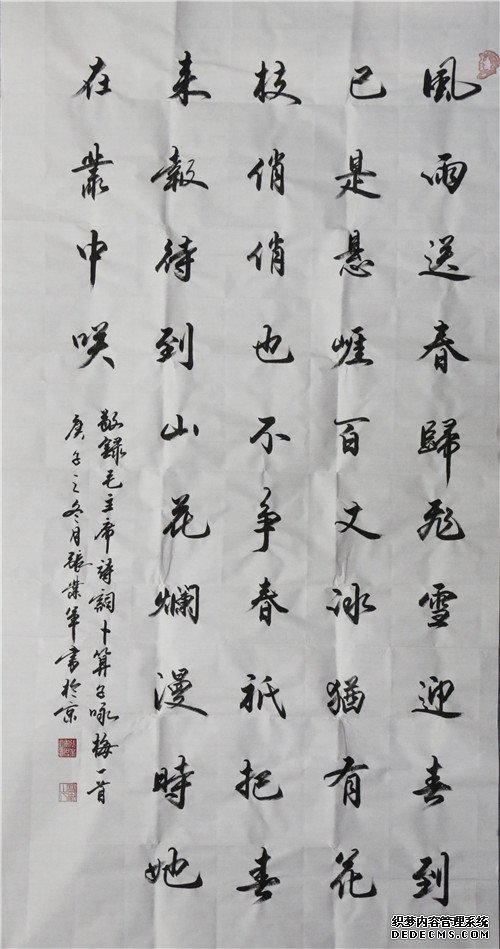 風雨送春歸飛雪迎春到
已是懸崕百丈冰猶有花
枝俏俏也不争春祇把春
来報待到山花爛漫時她
在叢中咲
敬録毛主席詩詞卜算子咏梅一首
庚子之冬月張業軍書於京
织梦内容管理系统
DEDECMS.COM